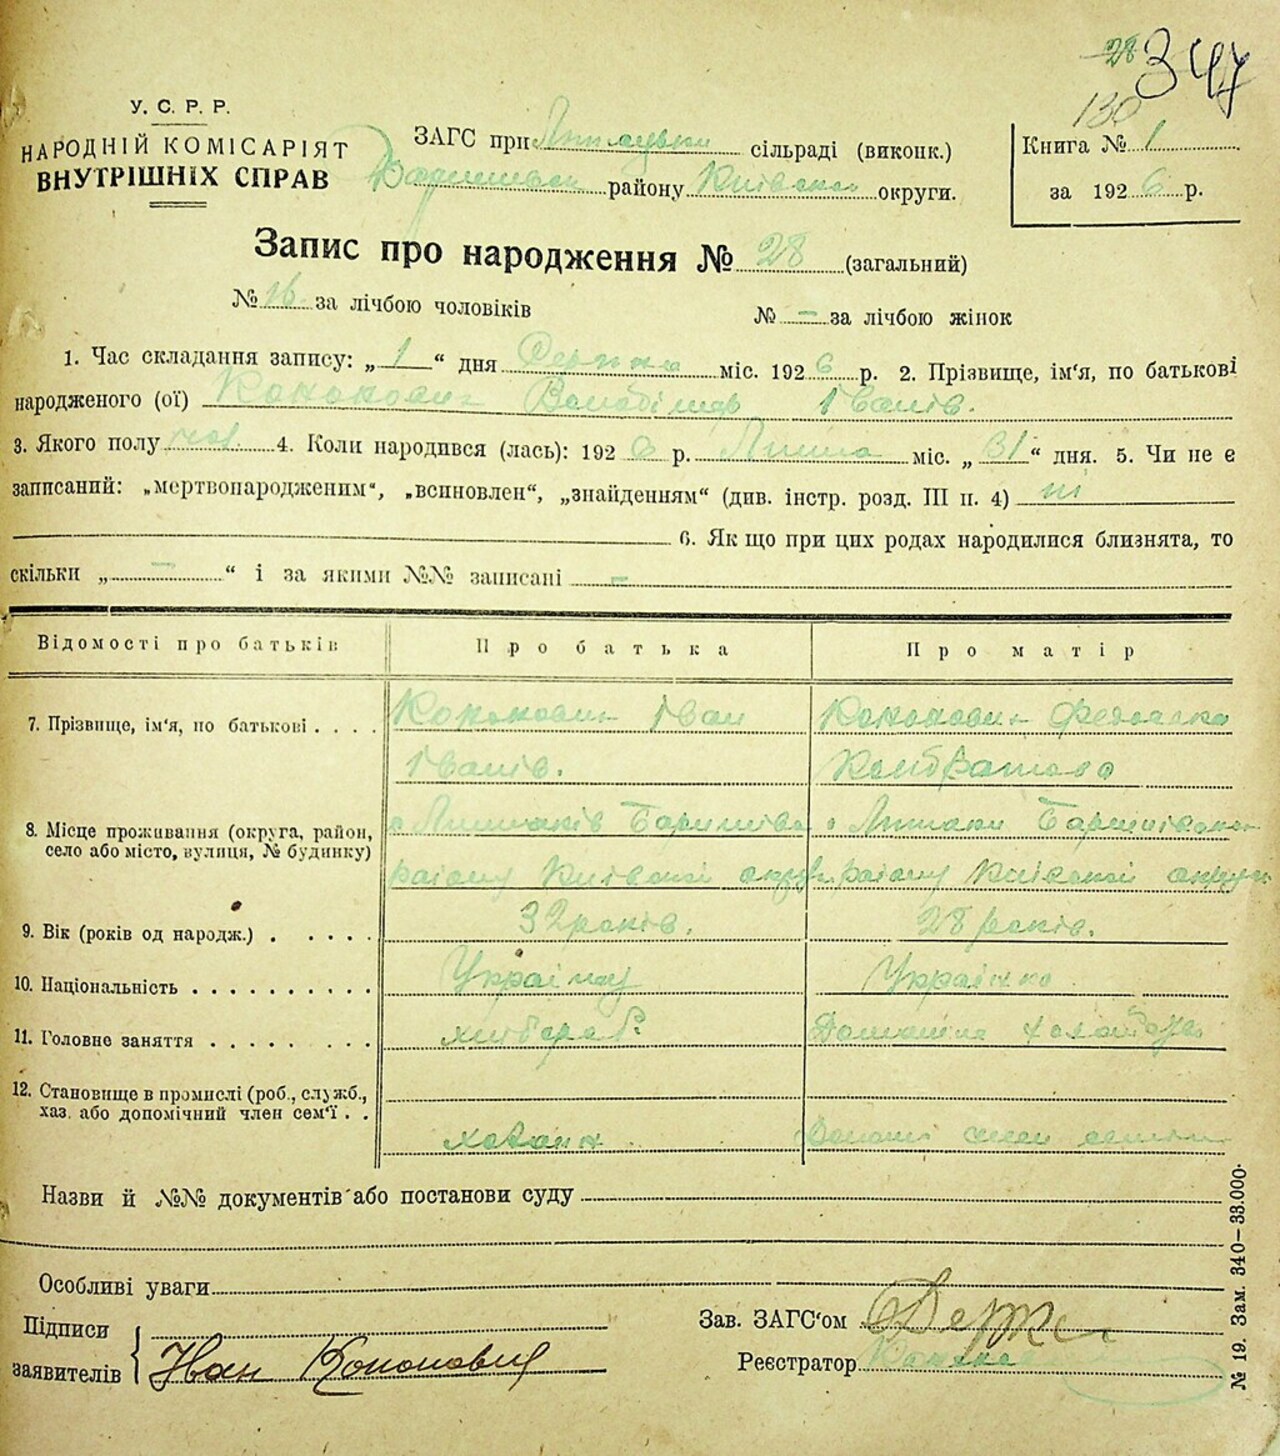 28 347
130
У. С. Р. Р.
НАРОДНІЙ КОМІСАРІЯТ
ВНУТРІШНІХ СПРАВ
ЗАГС при сільраді (виконк.)
району Київсько округи.
Книга № 1
за 1926 р.
Запис про народження № 28 (загальний)
№ 16 за лічбою чоловіків № - за лічбою жінок
1. Час складання запису: „1“ дня Серпня міс. 1926 р. 2. Прізвище, ім'я, по батькові
народженого (ої) Кононович Володімир Іванів.
3. Якого полу чол. 4. Коли народився (лась): 1926 р. Липня міс. „31“ дня. 5. Чи не є
записаний: „мертвонародженим“, „всиновлен“, „знайденням“ (див. інстр. розд. III п. 4) ні
6. Як що при цих родах народилися близнята, то
скільки „ - “ і за якими №№ записані -
Відомості про батьків Про батька Про матір
7. Прізвище, ім'я, по батькові . . . . Кононович Іван Кононович Федоська
Іванів. Кондратова
8. Місце проживання (округа, район,
село або місто, вулиця, № будинку)
району Київської округи району Київської округи
9. Вік (років од народж.) . . . . . 32 років. 28 років.
10. Національність . . . . . . . . . . Українец Українка
11. Головне заняття . . . . . . . . . хлібороб. Домашнє
12. Становище в промислі (роб., служб.,
хаз. або допомічний член сем'ї . .
хазаїн член
Назви й №№ документів або постанови суду
Особливі уваги
Підписи
заявителів Іван Кононович
Зав. ЗАГС'ом
Реєстратор
№ 19. Зам. 340–33.000.